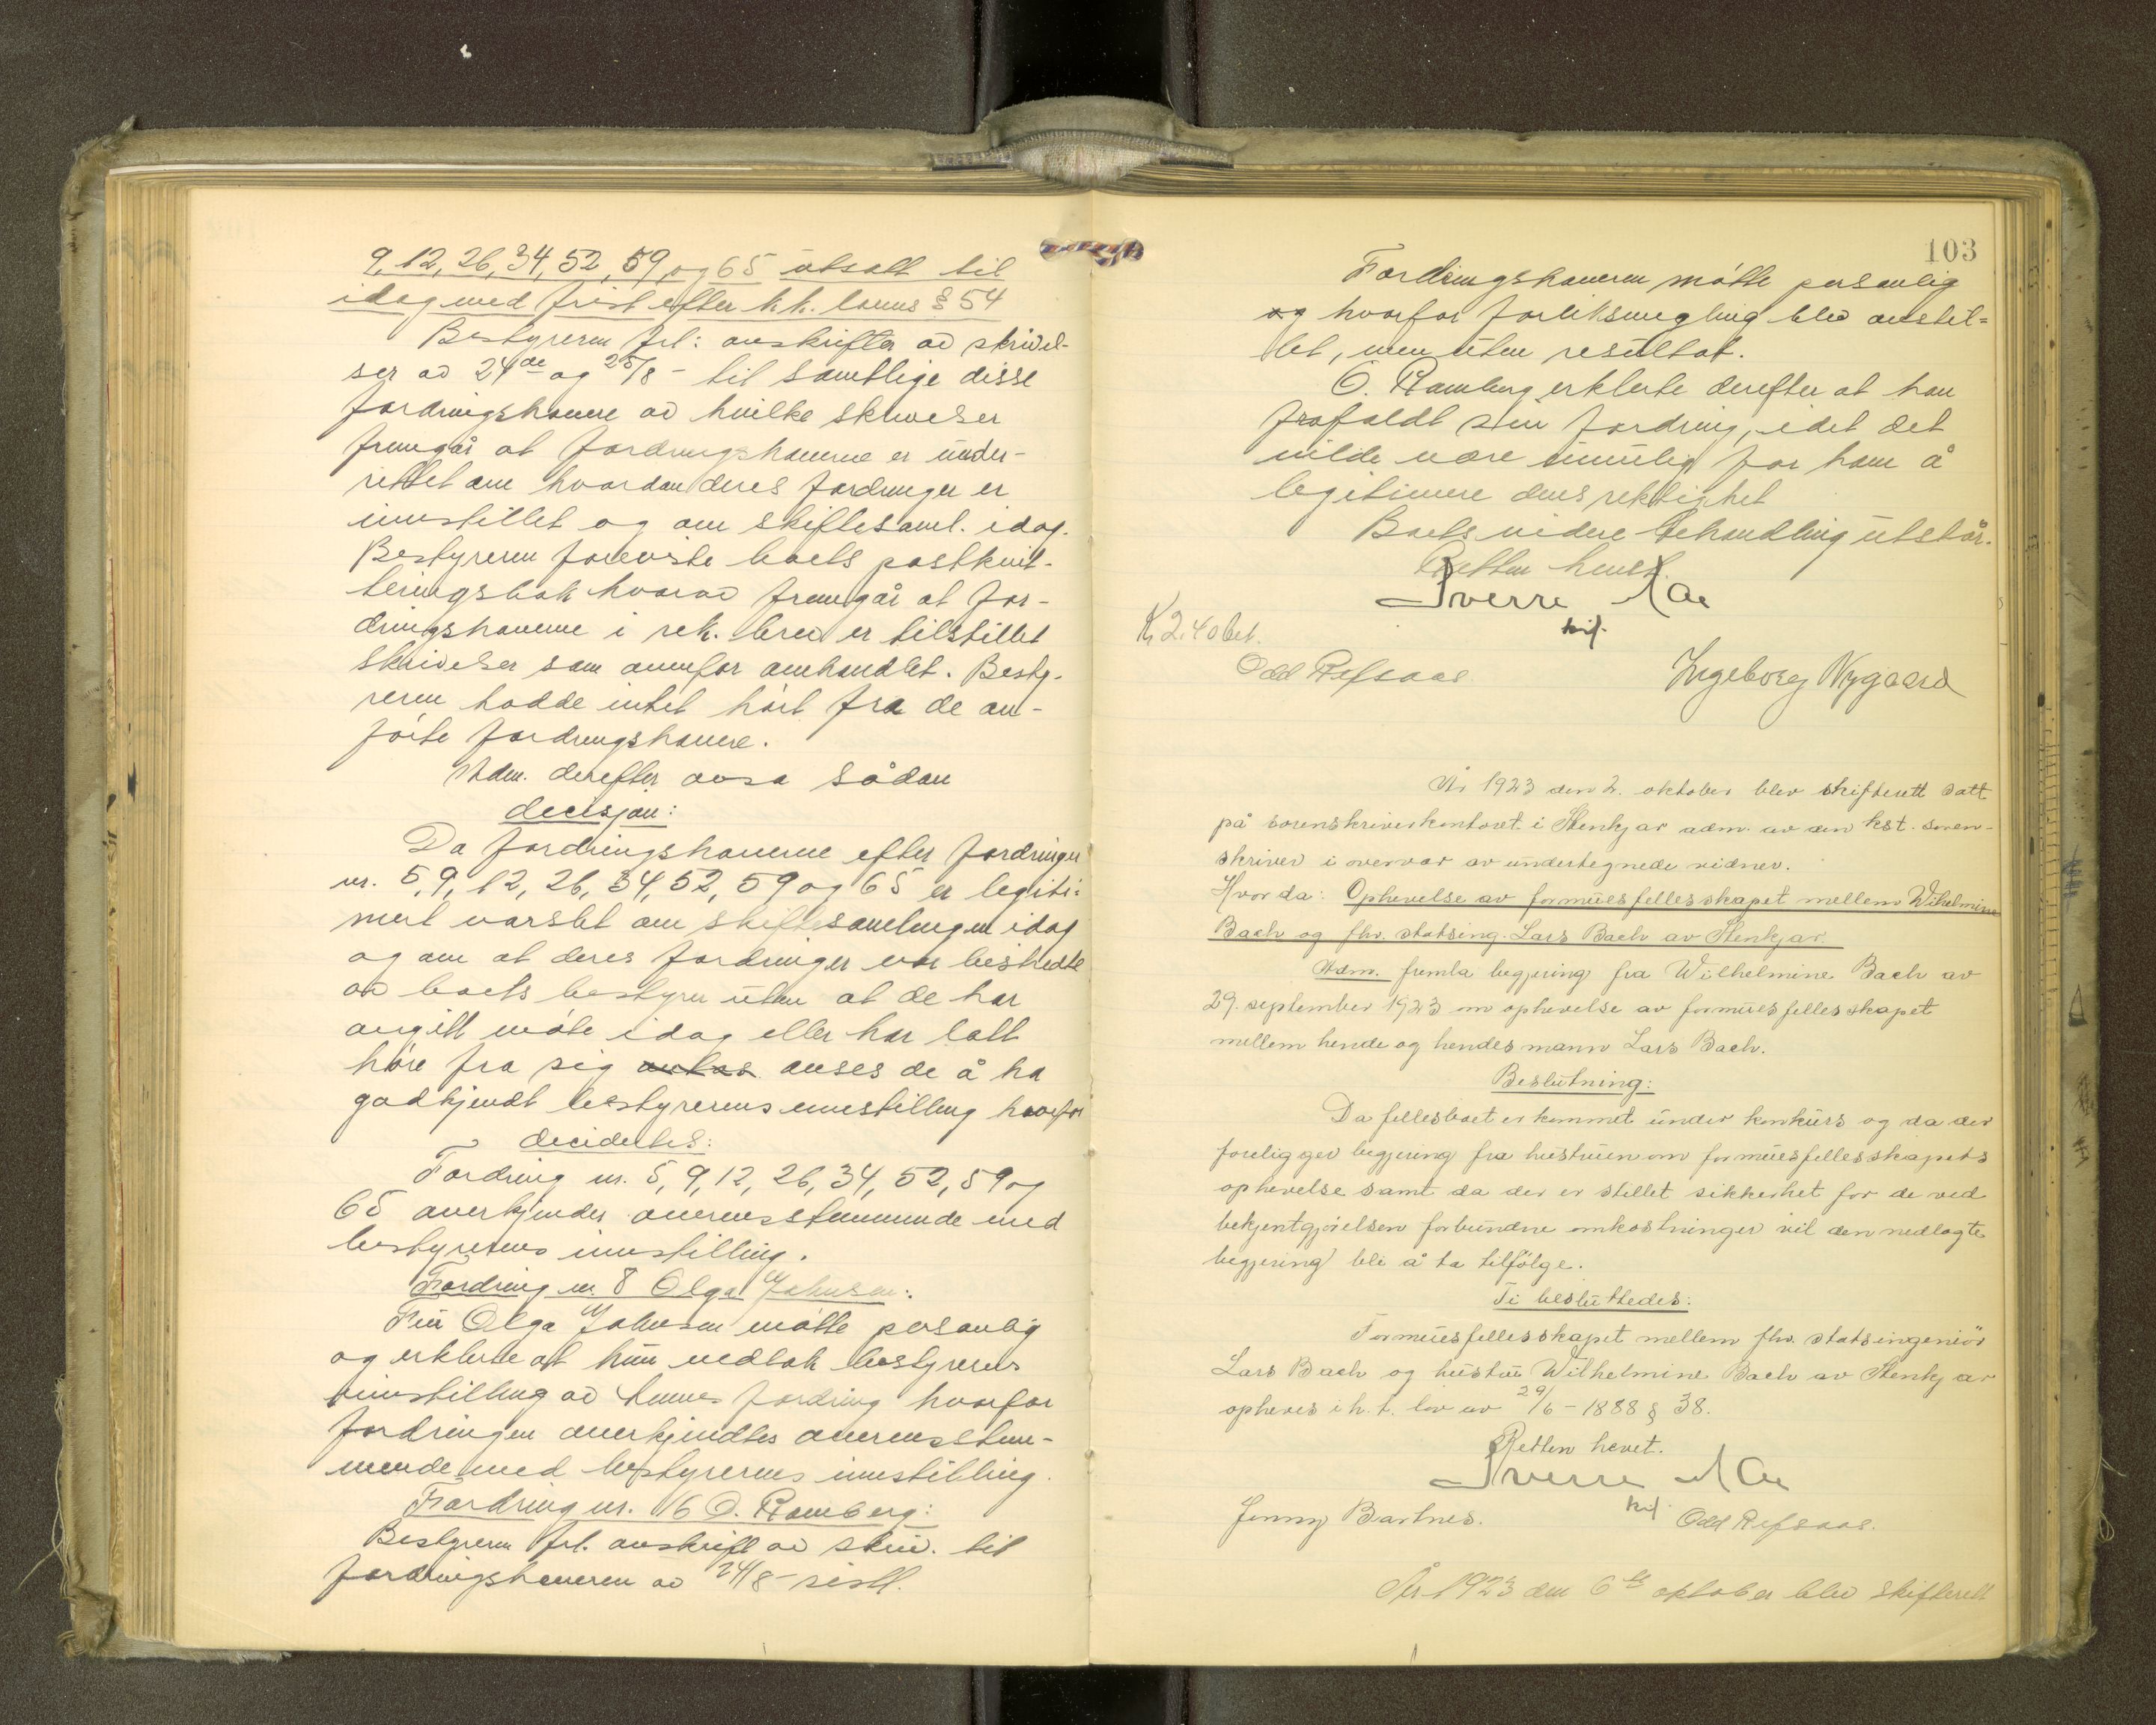 9, 12, 26, 34, 52, 59, og 65 utsatt til
idag med frist efter kk. lovens § 54
Bestyreren frl: avskrifter av skrivel-
ser av 24de og 25/8 - til samtlige disse
fordringshavere av hvilke skrivelser
fremgår at fordringshaverne er under-
rettet om hvordan deres fordringer er
innstillet og om skiftesaml. idag.
Bestyreren foreviste boets postkvit-
teringsbok hvorav fremgår at for-
dringshaverne i rek. brev er tilstillet
skrivelser som ovenfor omhandlet. Besty-
reren hadde intet hört fra de an-
förte fordringshavere.
Adm. derefter avsa sådan
decisjon:
Da fordringshaverne efter fordringer
nr. 5, 9, 12, 26, 34, 52, 59 og 65 er legiti-
mert varslet om skiftesamlingen idag
og om at deres fordringer var bestredte
av boets bestyrer uten at de har
avgitt möte idag eller har latt
höre fra sig anses de å ha
godkjendt bestyrerens innstilling hvorfor
decidertes:
Fordring nr. 5, 9, 12, 26, 34, 52, 59 og
65 anerkjendes overensstemmende med
bestyrerens innstilling.
Fordring nr. 8 Olga Johnsen:
Fru Olga Johnsen mötte personlig
og erklerte at hun vedtok bestyrerens
innstilling av hennes fordring hvorfor
fordringen anerkjendtes overensstem-
mende med bestyrerens innstilling.
Fordring nr. 16 O. Ramberg:
Bestyreren frl. avskrift av skriv. til
fordringshaveren av 24/8 - sistl.
103
Fordringshaveren mötte personlig
og hvorfor forliksmegling blev anstil-
let, men uten resultat.
O. Ramberg erklerte derefter at han
frafaldt sin fordring, idet det
vilde være umulig for ham å
legitimere dens riktighet
Boets videre behandling utstår.
Retten hevet.
Sverre Aa
kst.
Kr 2.40 bet.
Odd Refsaas Ingeborg Nygaard
År 1923 den 2. oktober blev skifterett satt
på sorenskriverkontoret i Stenkjær adm. av den kst. soren-
skriver i overvær av undertegnede vidner.
Hvor da: Ophevelse av formuesfellesskapet mellem Wilhelmine
Bach og fhv. statsing. Lars Bach av Stenkjær.
Adm. fremla begjering fra Wilhelmine Bach av
29. september 1923 om ophevelse av formuesfellesskapet
mellem hende og hendes mann Lars Bach.
Beslutning:
Da fellesboet er kommet under konkurs og da der
foreligger begjering fra hustruen om formuesfellesskapets
ophevelse samt da der er stillet sikkerhet for de ved
bekjentgjörelsen forbundne omkostninger vil den nedlagte
begjering bli å ta tilfölge.
Ti besluttedes:
Formuesfellesskapet mellem fhv. statsingeniör
Lars Bach og hustru Wilhelmine Bach av Stenkjær
opheves i h. t. lov av 29/6 - 1888 § 38.
Retten hevet.
Sverre Aa
kst.
Jenny Bartnes. Odd Refsaas.
År 1923 den 6te oktober blev skifterett